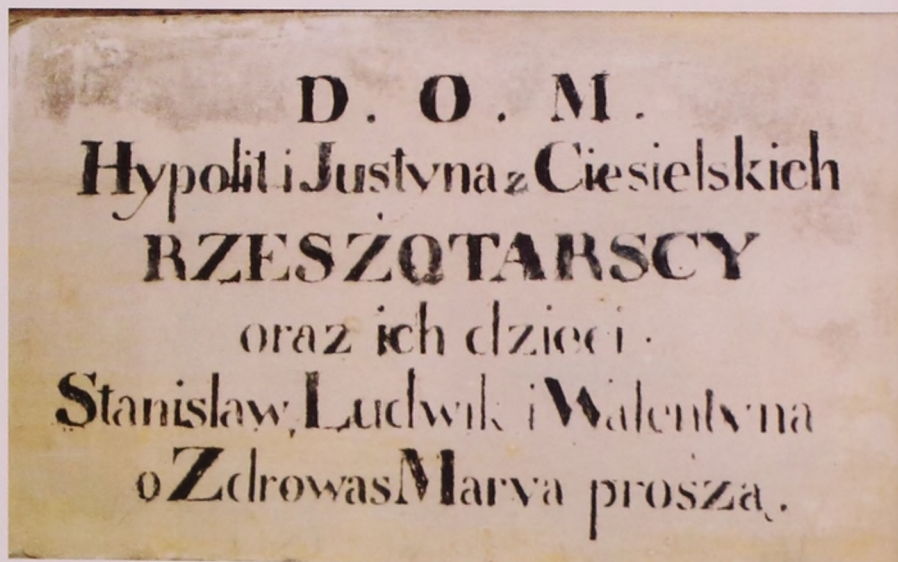 D. O. M.
Hypolit i Justyna z Ciesielskich
RZESZOTARSCY
oraz ich dzieci.
Stanisław, Ludwik i Walentyna
o Zdrowas Marya proszą.